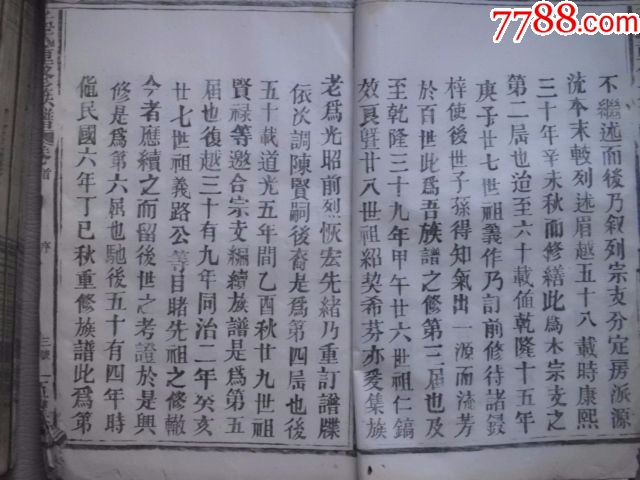 7788.com
不繼述而後乃叙列宗支分定房派源
流本末較列述眉越五十八載時康熙
三十年辛未秋而修繕此爲木宗支之
第二屆也迨至六十載値乾隆十五年
庚子廿七世祖義作乃訂前修待諸錄
梓使後世子孫得知氣出一源而流芳
於百世此爲吾族譜之修第三屆也及
至乾隆三十九年甲午廿六世祖仁鎬
效良曁廿八世祖紹契希芬亦爰集族
老爲光昭前烈恢宏先緒乃重訂譜牒
依次調陳賢嗣後裔是爲第四屆也後
五十載道光五年間乙酉秋廿九世祖
賢祿等邀合宗支編續族譜是爲第五
屆也復越三十有九年同治二年癸亥
廿七世祖義路公等目睹先祖之修轍
今者應續之而留後世之考證於是興
修是爲第六屆也馳後五十有四年時
値民國六年丁巳秋重修族譜此爲第
重修族譜
首
序
三號